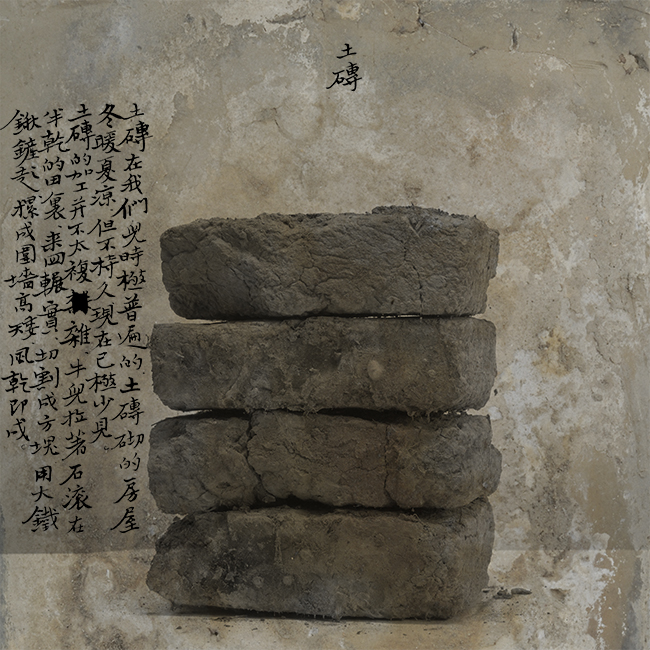 土磚
土磚在我們兒時極普遍的土磚砌的房屋
冬暖夏涼但不持久現在已極少見
土磚的加工并不太複雜牛兒拉著石滾在
半乾的田裏來回輾實切割成方塊用大鐵
鍬鏟起摞成圍墻高矮風乾即成。